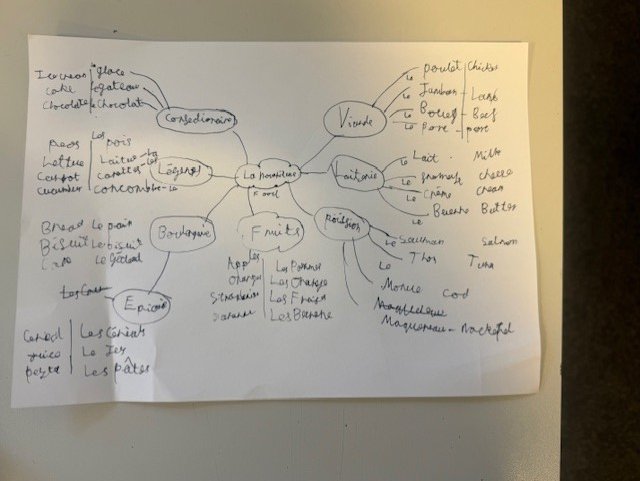 Icecream le glace
cake le gateau
Chocolate le Chocolat
Consedionairie
Les
peas pois
Lettuce Laitue la
Carrot carottes les
cucumber concombre le
Légumes
La nourriture
Food
Viande
Le poulet Chicken
Le Jambon Lamb
Le Boeuf Beef
Le Porc pork
Laiterie
Le Lait Milk
Le fromage cheese
Le Crème cream
Le Beurre Butter
Poission
Le Saumon Salmon
Le Thon Tuna
Morue cod
Maquereau - Mackerel
Boulangerie
Bread Le pain
Biscuit Le biscuit
Cake Le Gateau
Fruits
Les
App Les Pommes
Oranges Les Oranges
Strawberries Les Fraises
Banane Les Banane
Epicerie
Cereal Les Céréals
rice Le
pasta Les pâtes